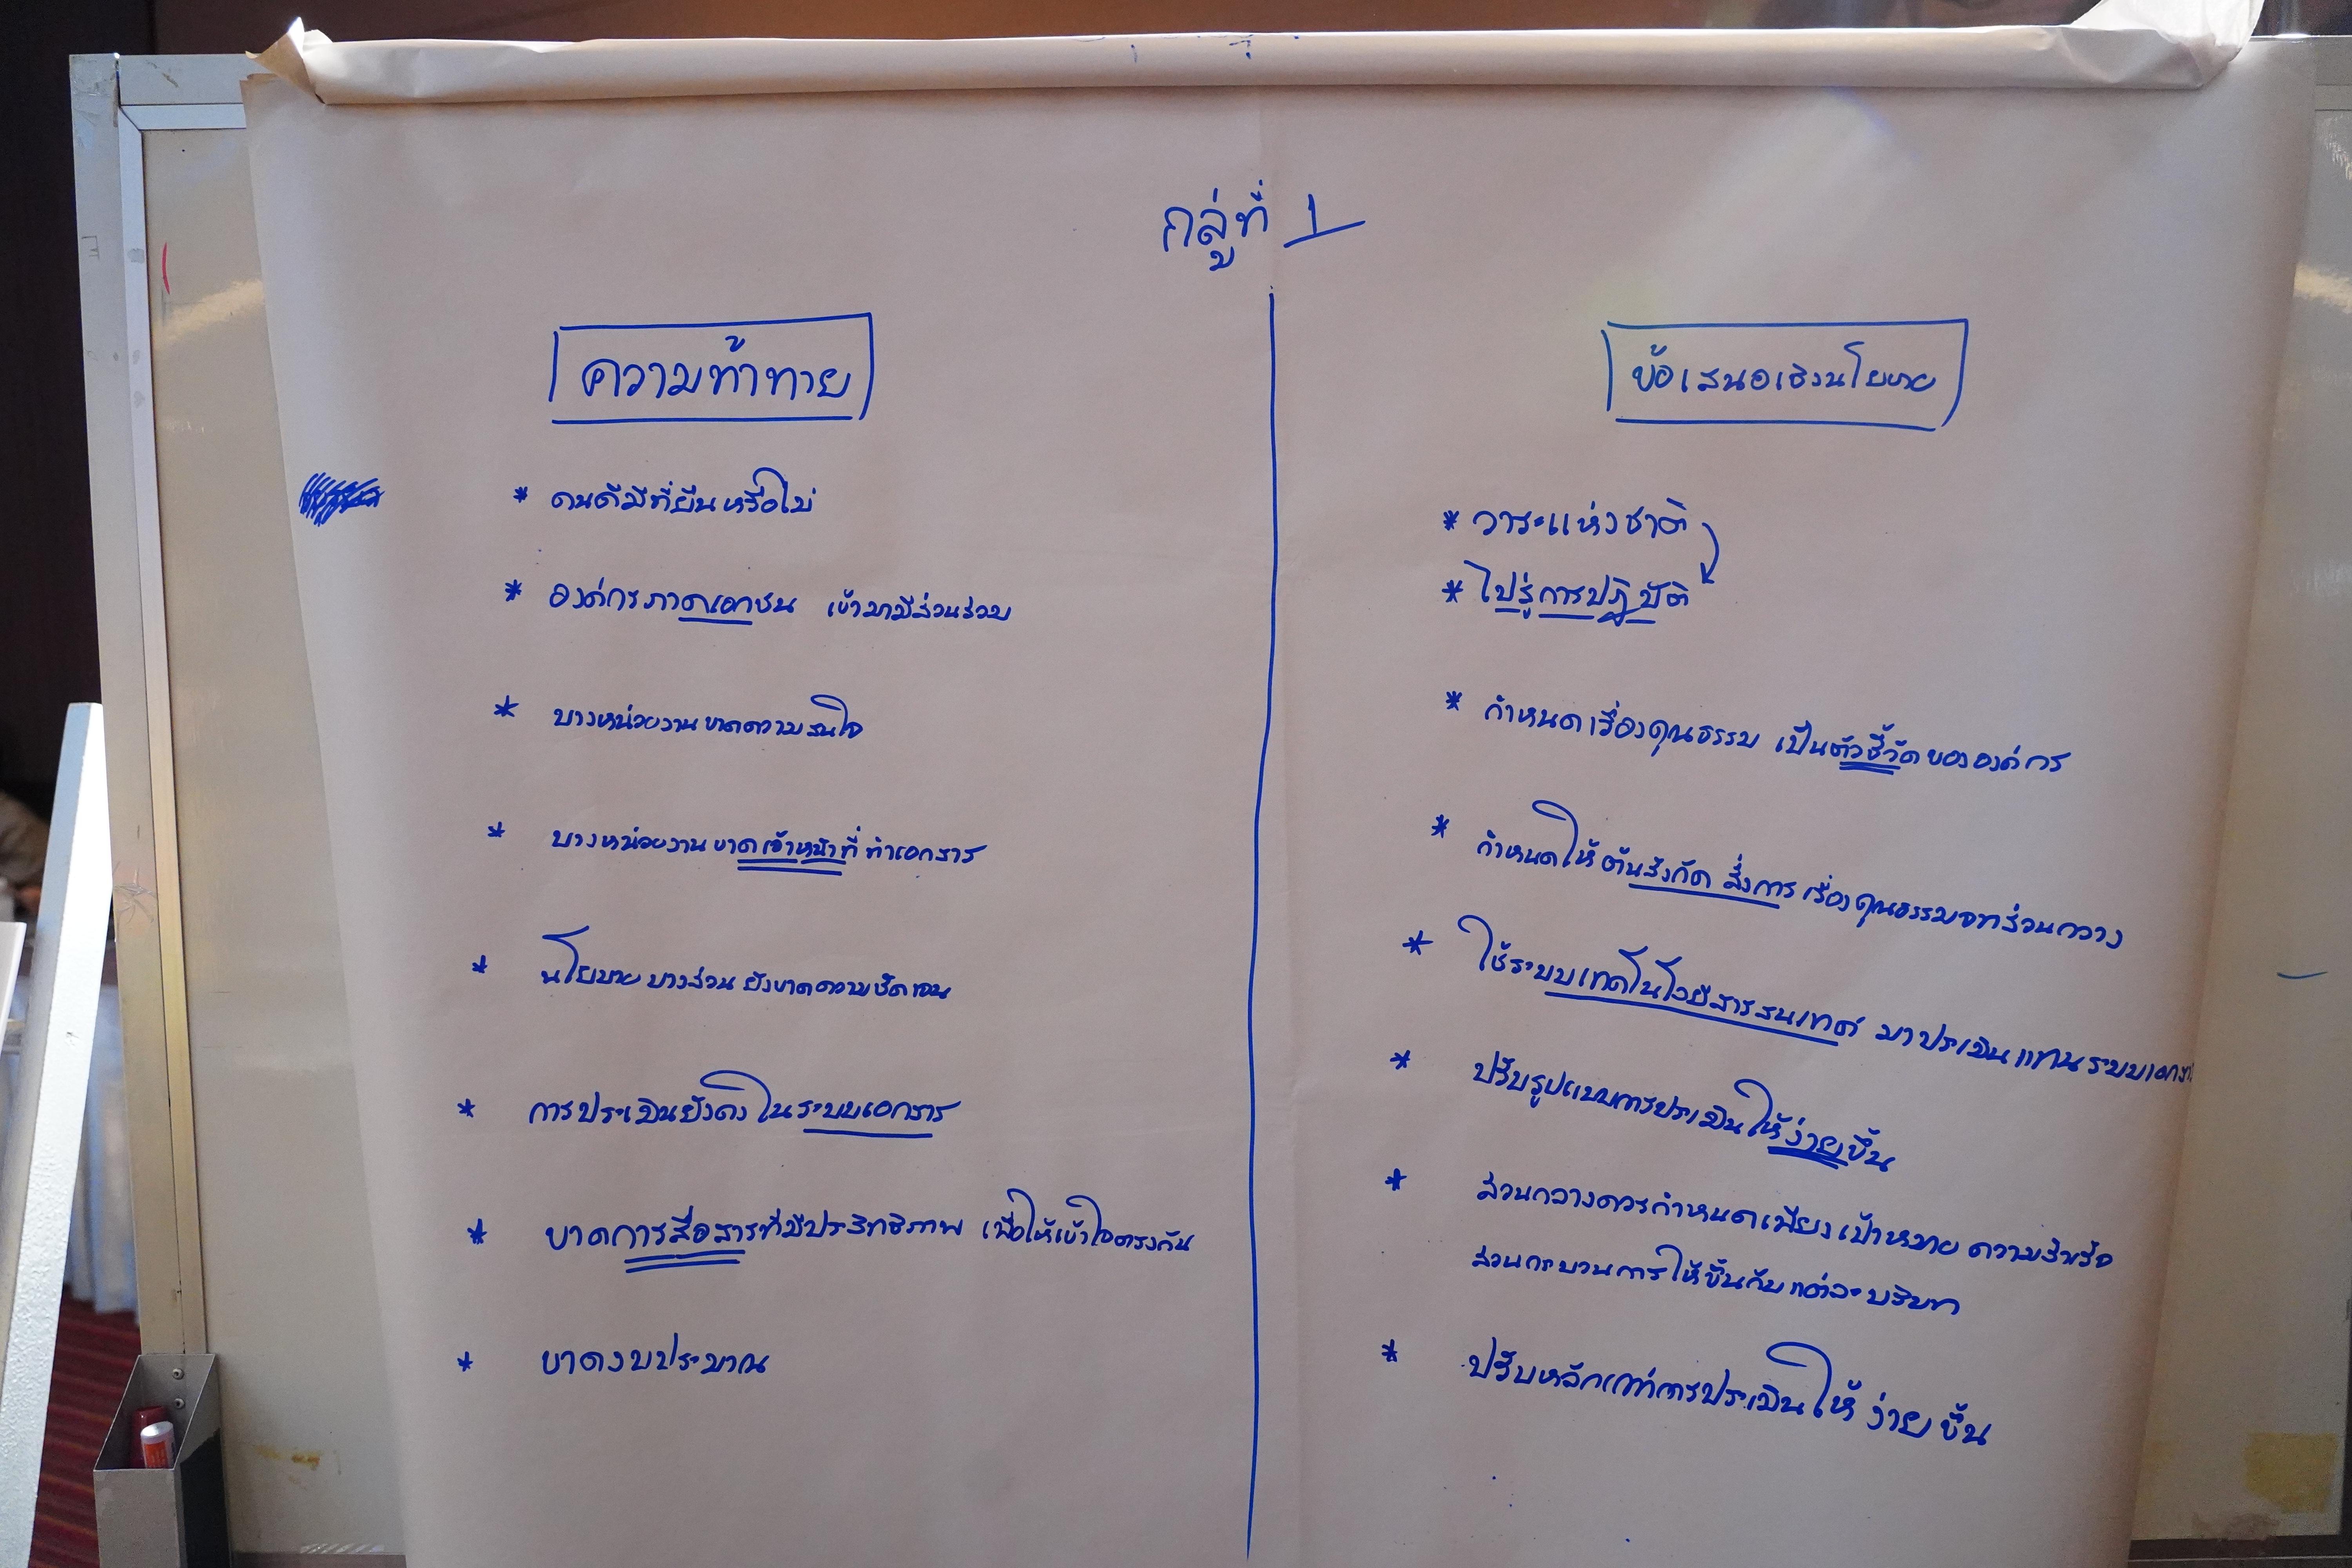 กลุ่มที่ 1
ความท้าทาย
* คนดีมีที่ยืนหรือไม่
* องค์กรภาคเอกชน เข้ามามีส่วนร่วม
* บางหน่วยงานขาดความสนใจ
* บางหน่วยงานขาดเจ้าหน้าที่ทำเอกสาร
* นโยบายบางส่วนยังขาดความชัดเจน
* การประเมินยังคงในระบบเอกสาร
* ขาดการสื่อสารที่มีประสิทธิภาพ เพื่อให้เข้าใจตรงกัน
* ขาดงบประมาณ
ข้อเสนอเชิงนโยบาย
* วาระแห่งชาติ
* ไปสู่การปฏิบัติ
* กำหนดเรื่องคุณธรรม เป็นตัวชี้วัดขององค์กร
* กำหนดให้ต้นสังกัด สั่งการเรื่องคุณธรรมจากส่วนกลาง
* ใช้ระบบเทคโนโลยีสารสนเทศ มาประเมินแทนระบบเอกสาร
* ปรับรูปแบบการประเมินให้ง่ายขึ้น
* ส่วนกลางควรกำหนดเพียงเป้าหมาย ความสำเร็จ
ส่วนกระบวนการให้ขึ้นกับแต่ละบริบท
* ปรับหลักเกณฑ์การประเมินให้ง่ายขึ้น